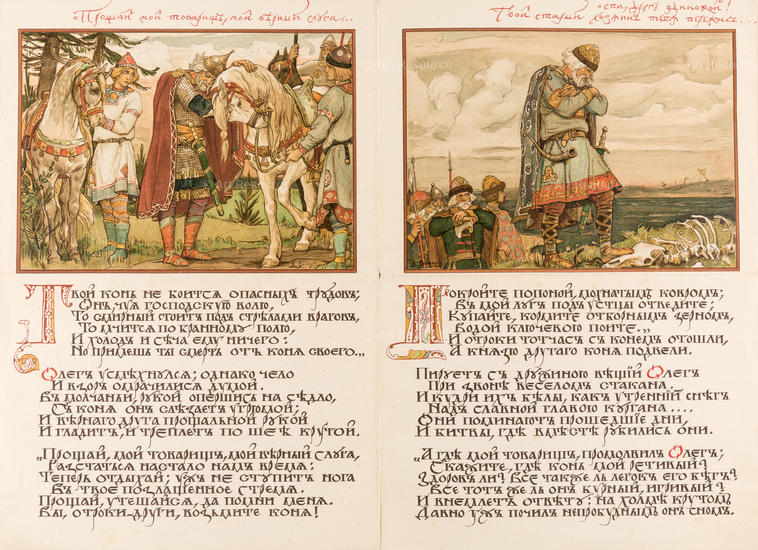 "Прощай мой товарищъ, мой вѣрный слуга...
Твой конь не боится опасныхъ трудовъ;
Онъ, чуя господскую волю,
То смирный стоитъ подъ стрѣлами враговъ,
То мчится по бранному полю,
И холодъ и сѣча ему ничего:
Но примешь ты смерть отъ коня своего...
Олегъ усмѣхнулся; однако чело
И взоръ омрачилися думой.
Въ молчаньи, рукой опершись на сѣдло,
Съ коня онъ слѣзаетъ угрюмой;
И вѣрнаго друга прощальной рукой
И гладитъ, и треплетъ по шеѣ крутой.
"Прощай, мой товарищъ, мой вѣрный слуга,
Разстаться настало намъ время:
Теперь отдыхай; ужъ не ступитъ нога
Въ твое позлащенное стремя.
Прощай, утешайся, да помни меня.
Вы, отроки-други, возьмите коня!
спи, другъ одинокой!
Твой старый хозяинъ тебя пережилъ...
Покройте попоной, мохнатымъ ковромъ;
Въ мой лугъ подъ устцы отведите;
Купайте, кормите отборнымъ зерномъ,
Водой ключевою поите...
И отроки тотчасъ съ конемъ отошли,
А князю другаго коня подвели.
Пируетъ съ дружиною вѣщій Олегъ
При звонѣ веселомъ стакана.
И кудри ихъ бѣлы, какъ утренній снѣгъ
Надъ славной главою кургана....
Они поминаютъ прошедшіе дни,
И битвы, гдѣ вмѣстѣ рубились они.
"А гдѣ мой товарищъ, промолвилъ Олегъ;
Скажите, гдѣ конь мой ретивый?
Здоровъ ли? Все такъ же ль легокъ его бѣгъ?
Все тотъ же ль онъ бурный, игривый?
И внемлетъ отвѣту: на холмѣ крутомъ
Давно ужъ почилъ непробуднымъ онъ сномъ.